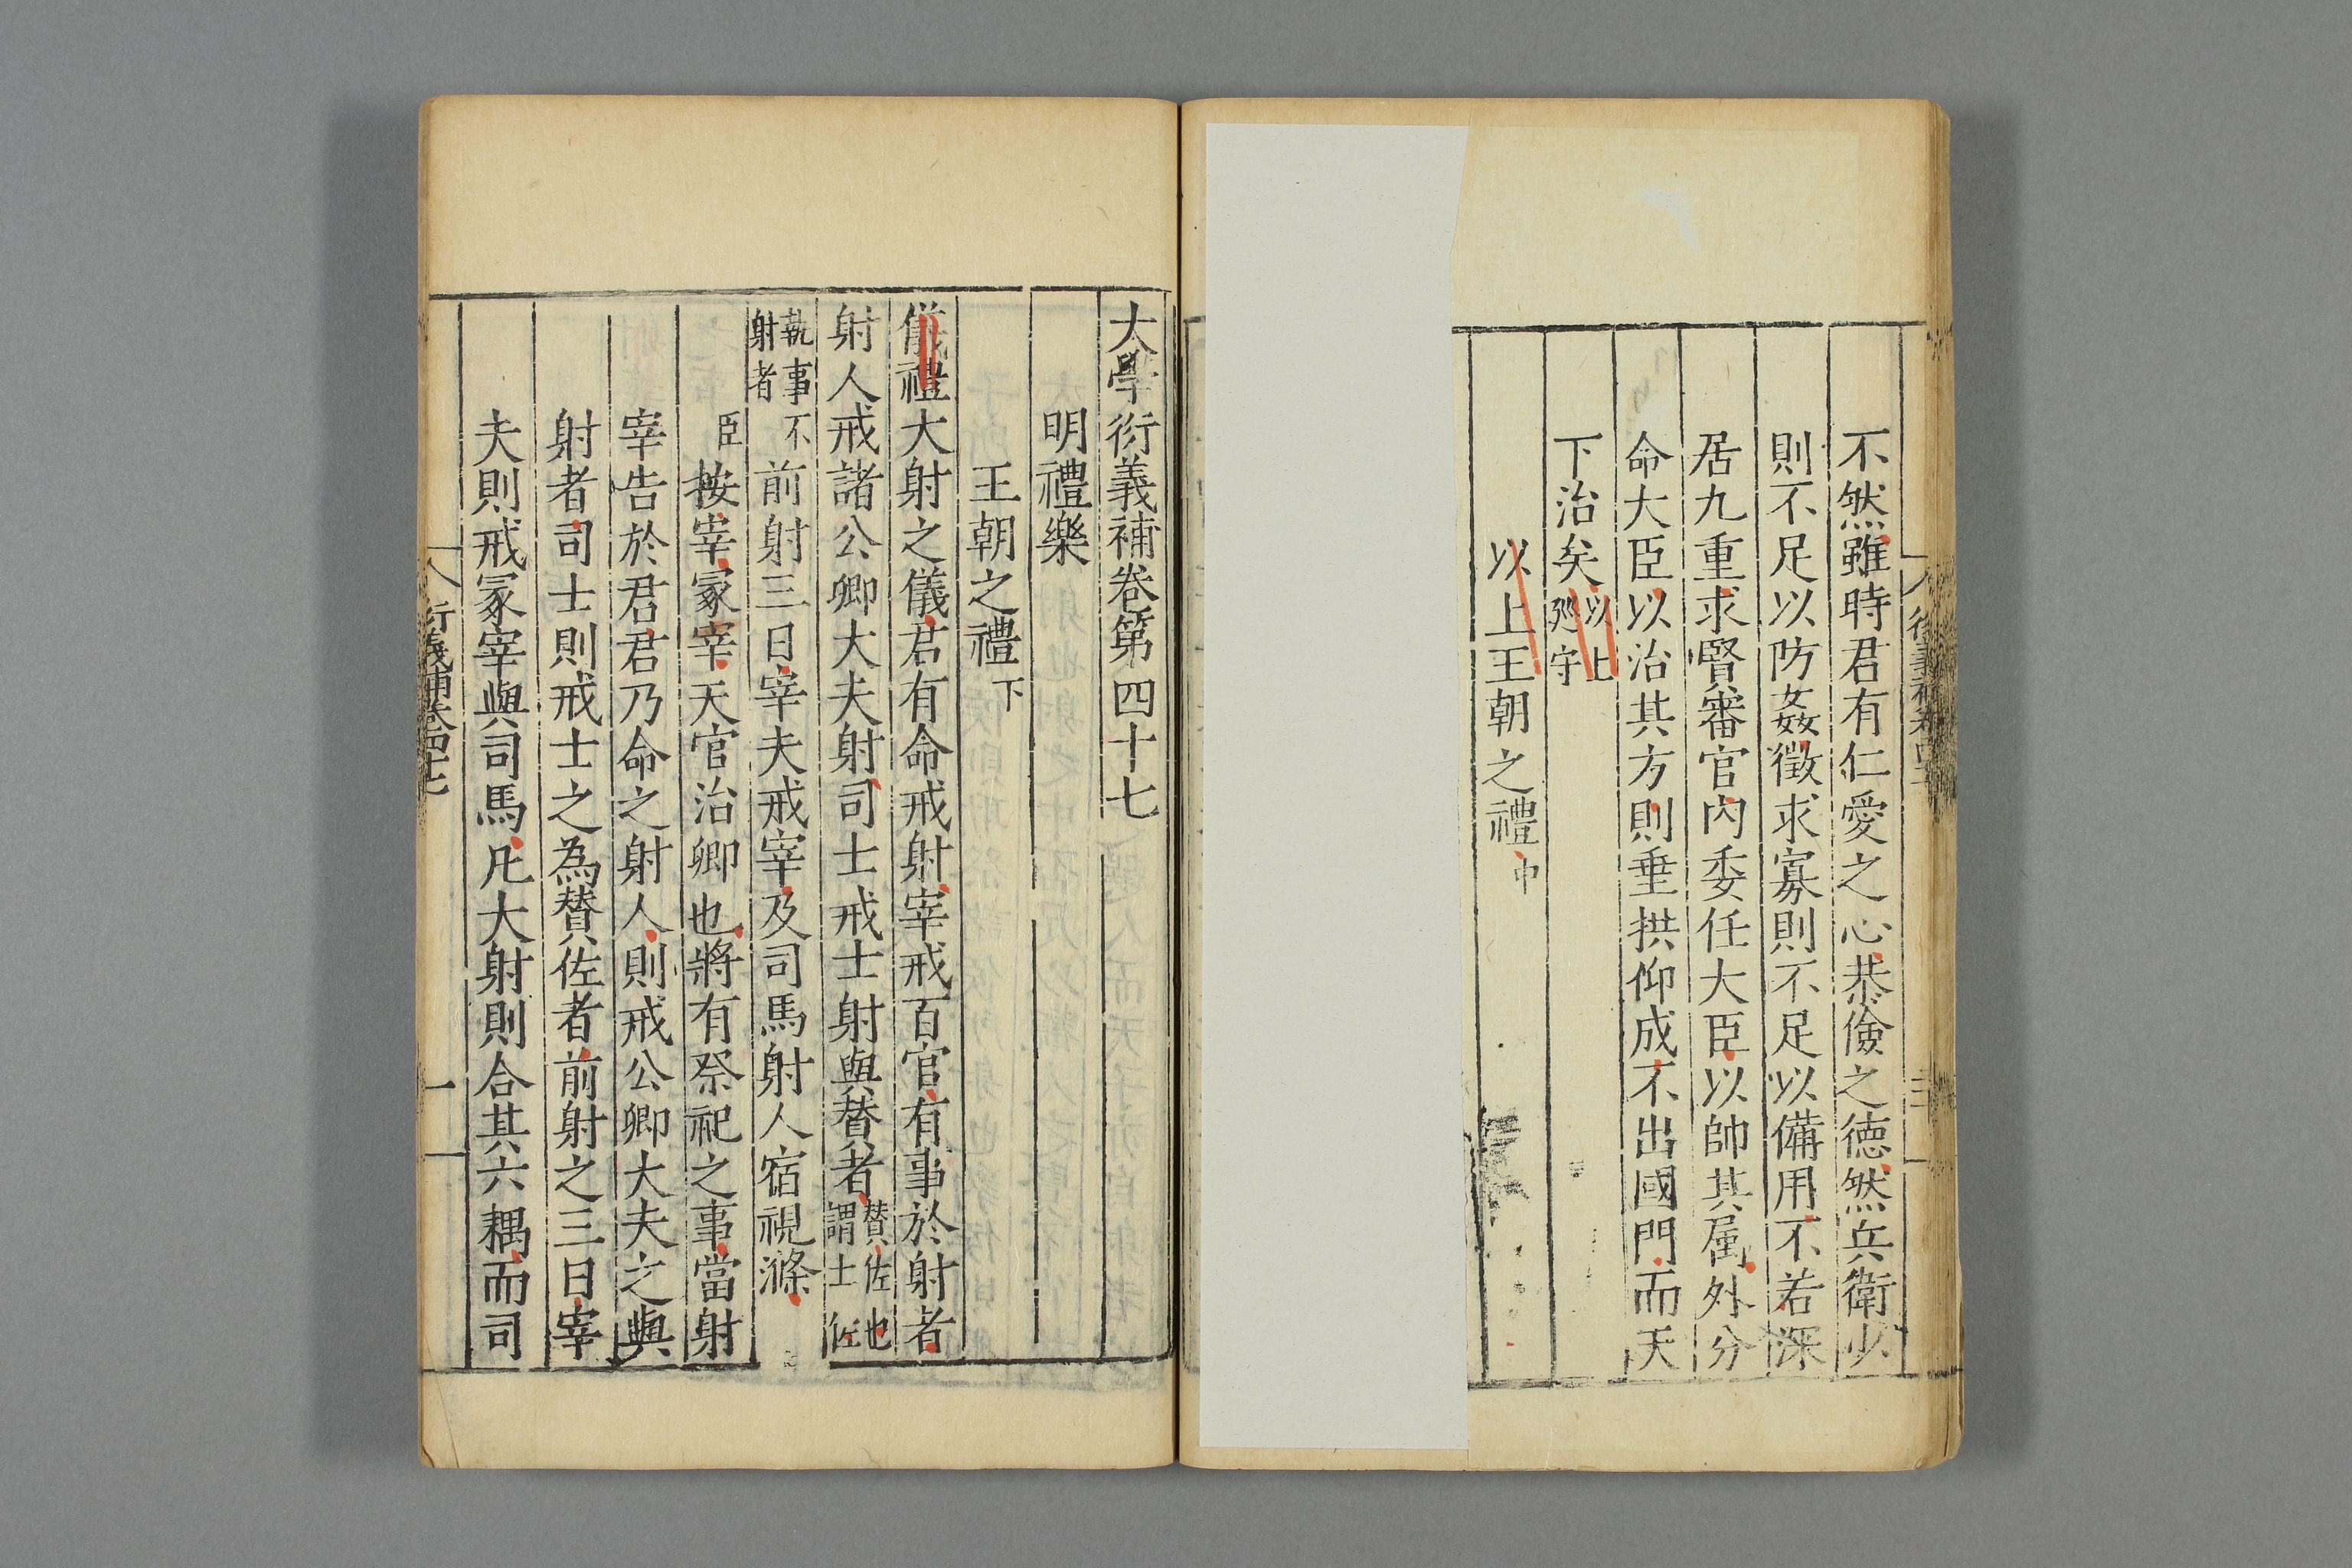 不然雖時君有仁愛之心恭儉之德然兵衛少
則不足以防姦徵求寡則不足以備用不若深
居九重求賢審官内委任大臣以帥其属外分
命大臣以治其方則垂拱仰成不出國門而天
下治矣以上廵守
以上王朝之禮中
大學衍義補卷第四十七
明禮樂
王朝之禮下
儀禮大射之儀君有命戒射宰戒百官有事於射者
射人戒諸公卿大夫射司士戒士射與賛者賛佐也謂士佐
執事不射者前射三日宰夫戒宰及司馬射人宿視滌
臣按宰冢宰天官治卿也將有祭祀之事當射
宰告於君君乃命之射人則戒公卿大夫之與
射者司士則戒士之為賛佐者前射之三日宰
夫則戒冢宰與司馬凡大射則合其六耦而司
衍義補卷四十七
一